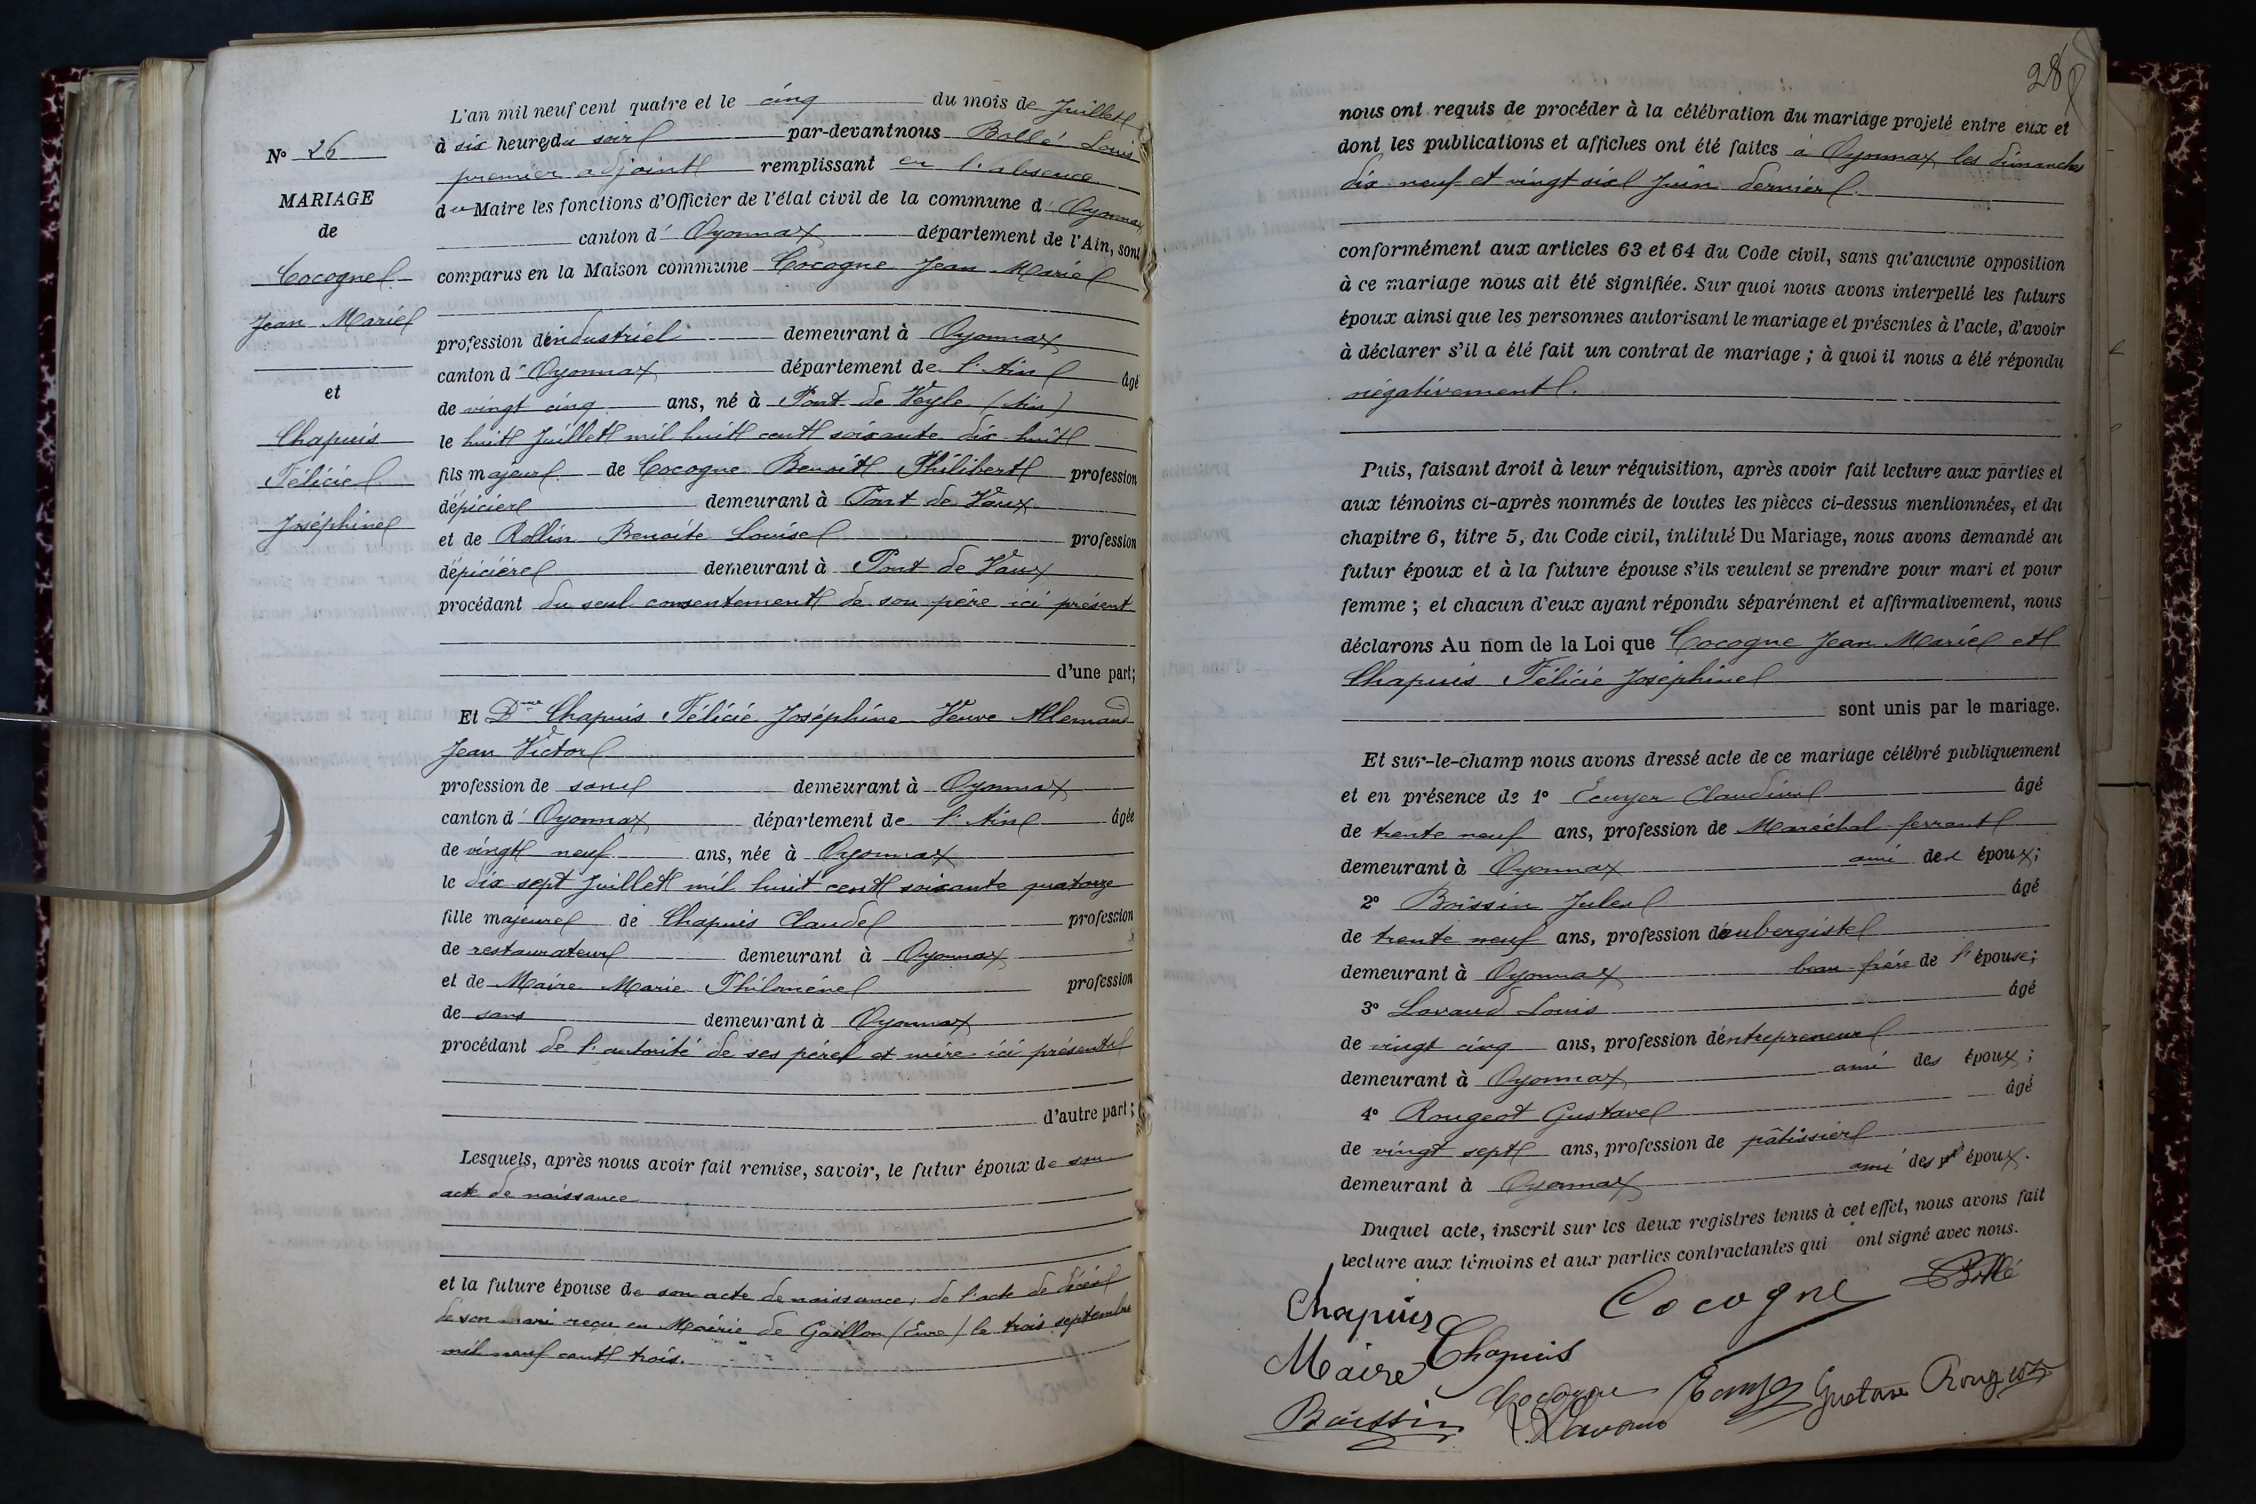 L'an mil neuf cent quatre et le cinq du mois de Juillet
à six heures du soir par-devant nous Bollé Louis
premier adjoint remplissant en l'absence
du Maire les fonctions d'Officier de l'état civil de la commune d'Oyonnax
canton d'Oyonnax département de l'Ain, sont
comparus en la Maison commune Cocogne Jean Marie
profession d'industriel demeurant à Oyonnax
canton d'Oyonnax département de l'Ain âgé
de vingt cinq ans, né à Pont de Veyle (Ain)
le huit Juillet mil huit cent soixante dix-huit
fils majeur de Cocogne Benoît Philibert profession
d'épicier demeurant à Pont de Vaux
et de Rollin Benoite Louise profession
d'épicière demeurant à Pont de Vaux
procédant du seul consentement de son père ici présent
d'une part;
Et Dme Chapuis Félicie Joséphine Veuve Allemand
Jean Victor
profession de sans demeurant à Oyonnax
canton d'Oyonnax département de l'Ain âgée
de vingt neuf ans, née à Oyonnax
le dix sept Juillet mil huit cent soixante quatorze
fille majeure de Chapuis Claude profession
de restaurateur demeurant à Oyonnax
et de Maire Marie Philomène profession
de sans demeurant à Oyonnax
procédant de l'autorité de ses père et mère ici présents
d'autre part;
Lesquels, après nous avoir fait remise, savoir, le futur époux de son
acte de naissance
et la future épouse de son acte de naissance, de l'acte de décès
de son mari reçu en Mairie de Gaillon (Eure) le trois septembre
mil neuf cent trois.
No 26
MARIAGE
de
Cocogne
Jean Marie
et
Chapuis
Félicie
Joséphine
28
nous ont requis de procéder à la célébration du mariage projeté entre eux et
dont les publications et affiches ont été faites à Oyonnax les dimanches
dix neuf et vingt six Juin dernier.
conformément aux articles 63 et 64 du Code civil, sans qu'aucune opposition
à ce mariage nous ait été signifiée. Sur quoi nous avons interpellé les futurs
époux ainsi que les personnes autorisant le mariage et présentes à l'acte, d'avoir
à déclarer s'il a été fait un contrat de mariage ; à quoi il nous a été répondu
négativement.
Puis, faisant droit à leur réquisition, après avoir fait lecture aux parties et
aux témoins ci-après nommés de toutes les pièces ci-dessus mentionnées, et du
chapitre 6, titre 5, du Code civil, intitulé Du Mariage, nous avons demandé au
futur époux et à la future épouse s'ils veulent se prendre pour mari et pour
femme ; et chacun d'eux ayant répondu séparément et affirmativement, nous
déclarons Au nom de la Loi que Cocogne Jean Marie et
Chapuis Félicie Joséphine
sont unis par le mariage.
Et sur-le-champ nous avons dressé acte de ce mariage célébré publiquement
et en présence de 1° Ecuyer Claudius âgé
de trente neuf ans, profession de Maréchal-ferrant
demeurant à Oyonnax ami des époux;
2° Boissin Jules âgé
de trente neuf ans, profession d'aubergiste
demeurant à Oyonnax beau-frère de l'épouse;
3° Lavaud Louis âgé
de vingt cinq ans, profession d'entrepreneur
demeurant à Oyonnax ami des époux;
4° Rougeot Gustave âgé
de vingt sept ans, profession de pâtissier
demeurant à Oyonnax ami des époux.
Duquel acte, inscrit sur les deux registres tenus à cet effet, nous avons fait
lecture aux témoins et aux parties contractantes qui ont signé avec nous.
Chapuis Cocogne Bollé
Maire Chapuis
Cocogne Ecuyer Gustave Rougeot
Boissin L. Lavaud